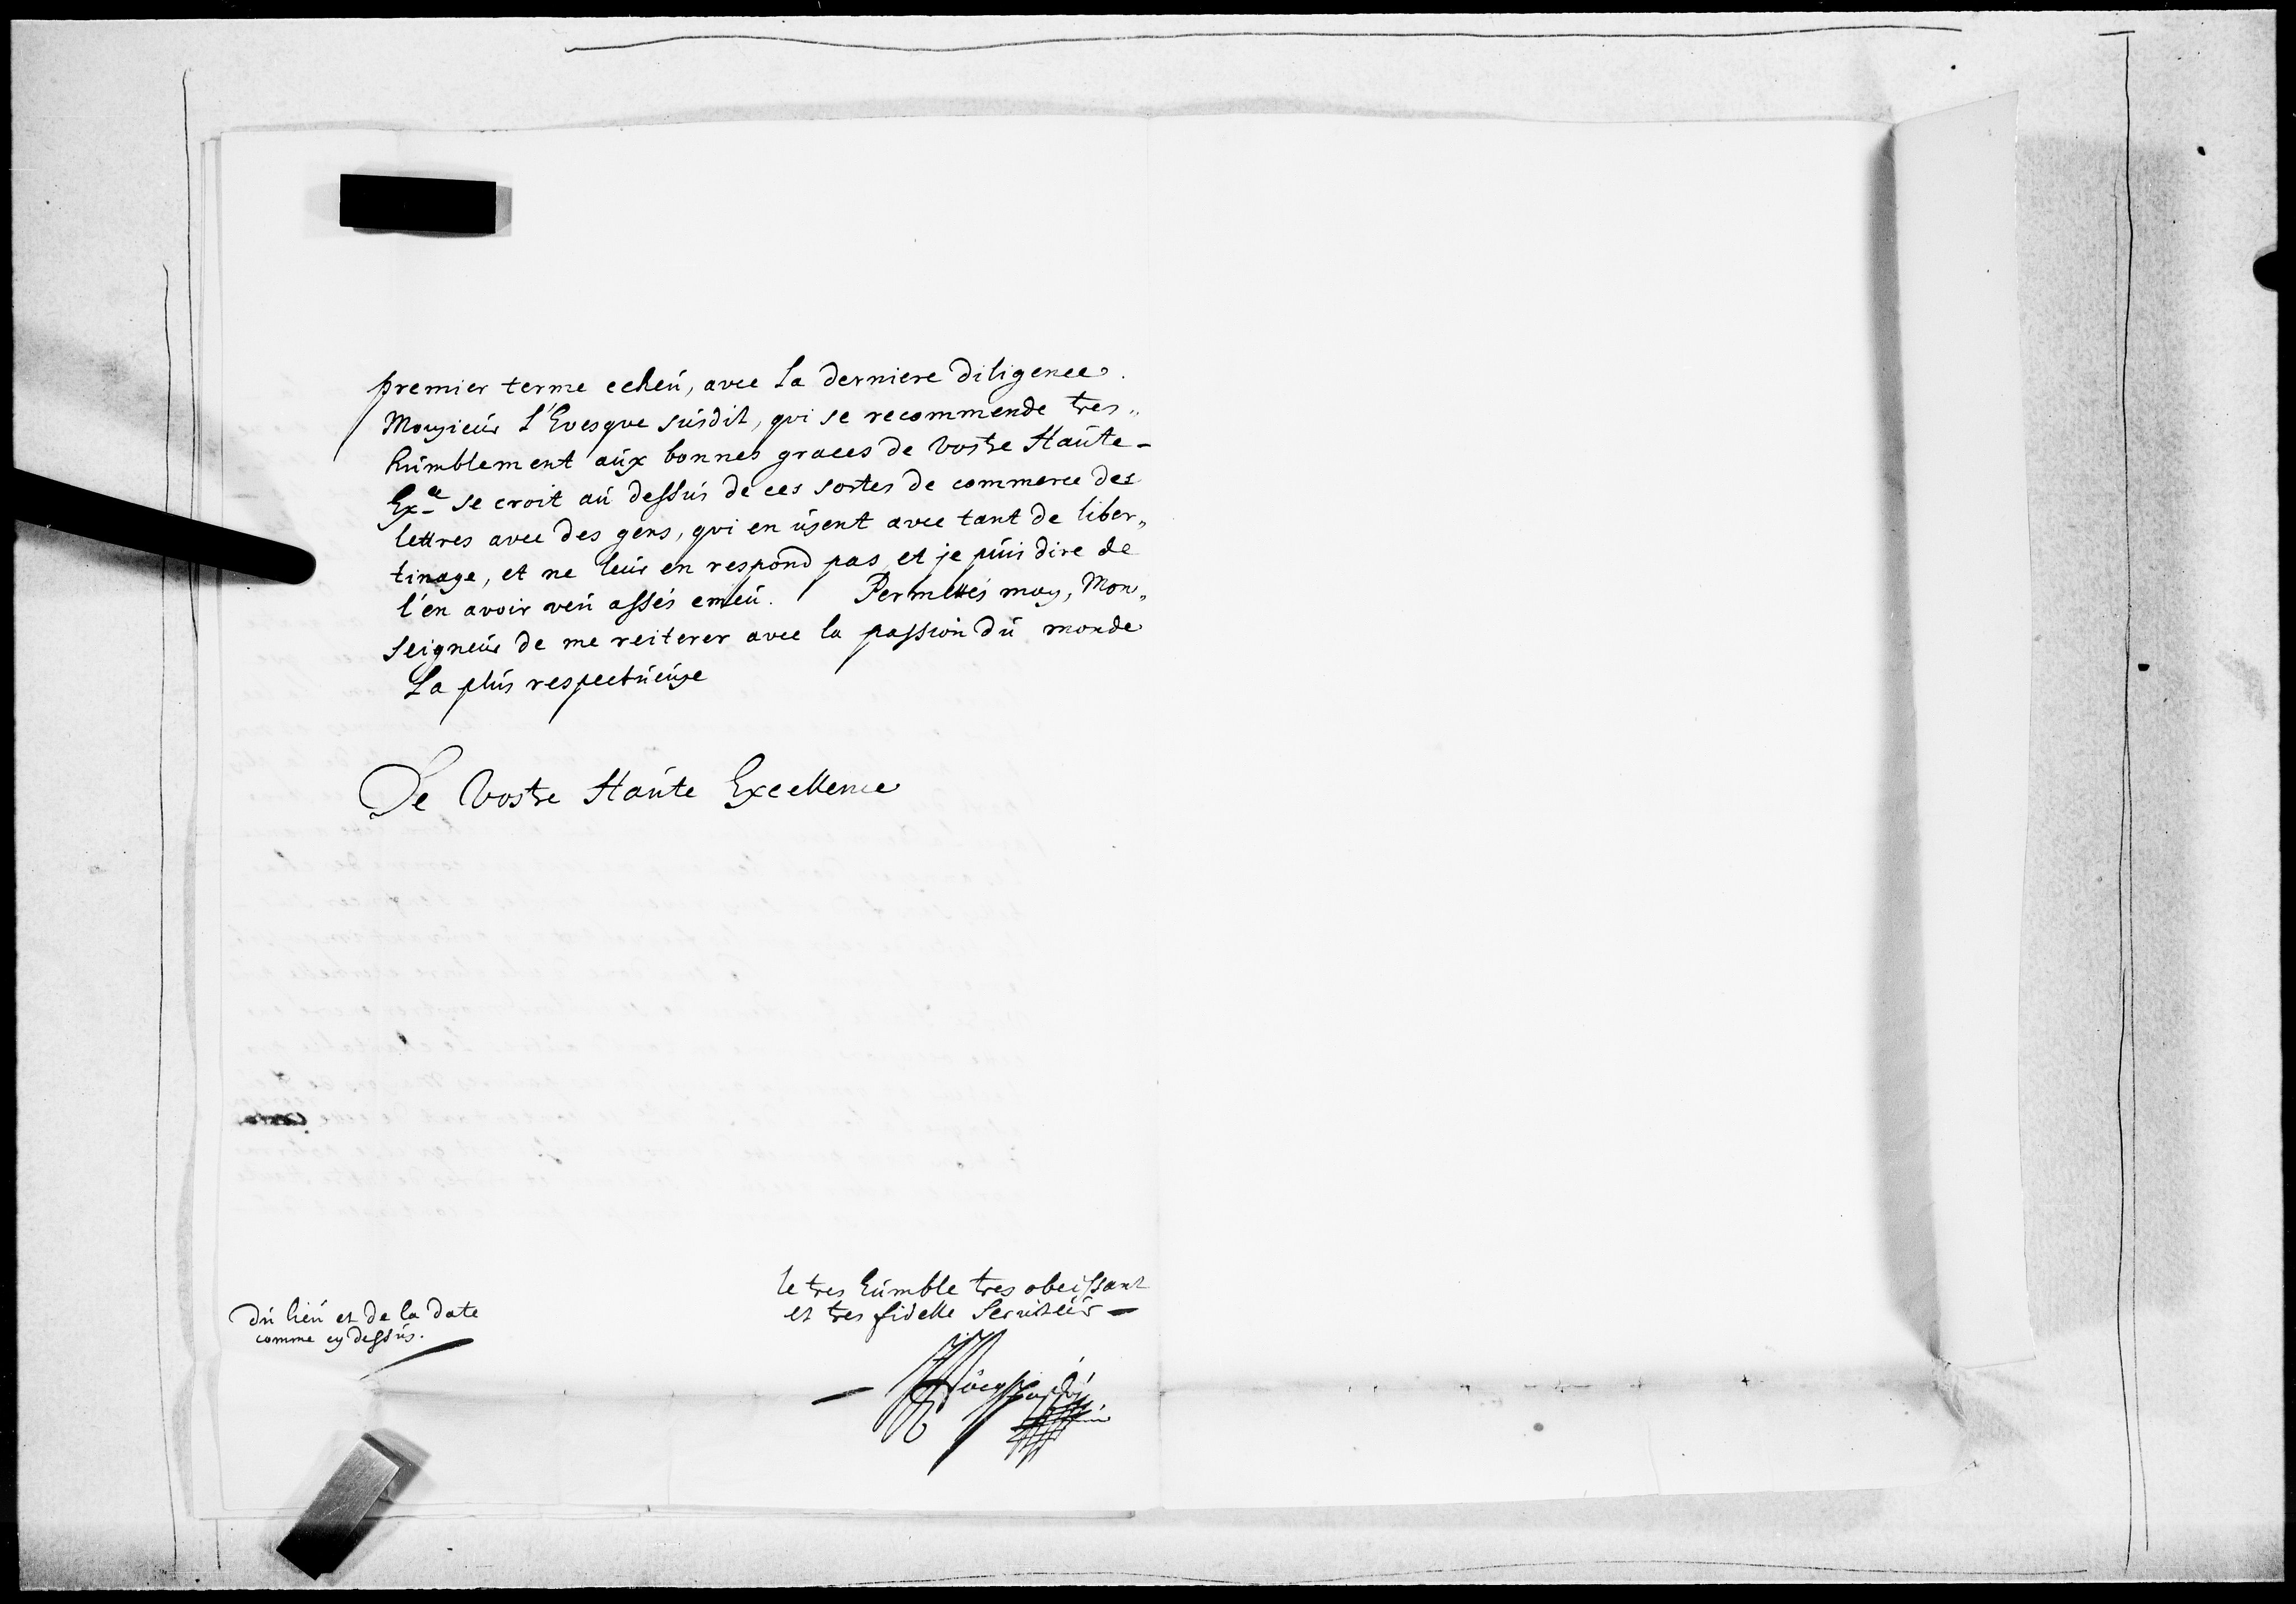 premier terme echeu, avec la derniere diligence.
Monsieur l'Evesque susdit, qui se recommende tres„
humblement aux bonnes graces de Vostre Haute-
Ex.ce se croit au dessus de ces sortes de commerce des
lettres avec des gens, qui en usent avec tant de liber„
tinage, et ne leur en respond pas, et je puis dire de
l'en avoir veu assés emeu. Permettés moy, Mon„
seigneur de me reiterer avec la passion du monde
La plus respectueuse
De Vostre Haute Excellence
le tres humble tres obeissant
et tres fidelle Serviteur
Du lieu et de la date
comme cy dessus.